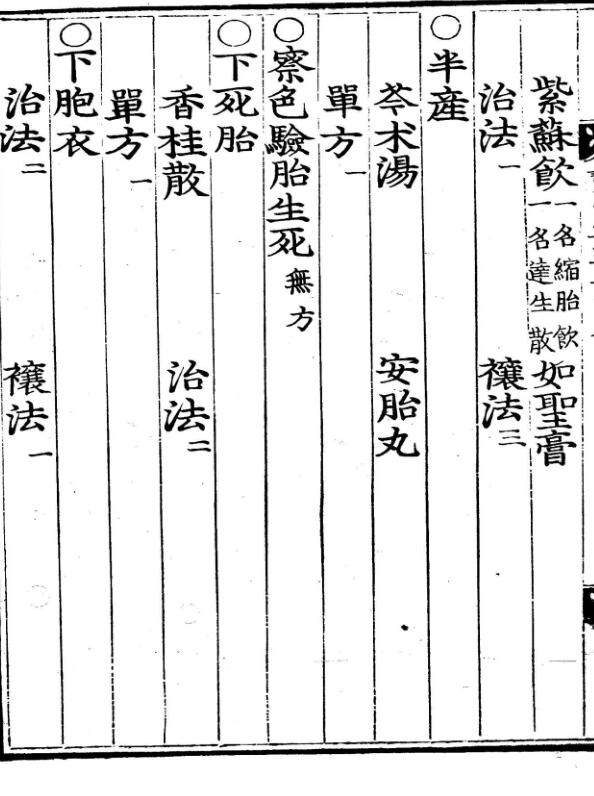 紫蘇飮一名縮胎飮一名達生散 如聖膏
治法一 禳法三
○半産
芩朮湯 安胎丸
單方一
○察色驗胎生死無方
○下死胎
香桂散 治法二
單方一
○下胞衣
治法二 禳法一